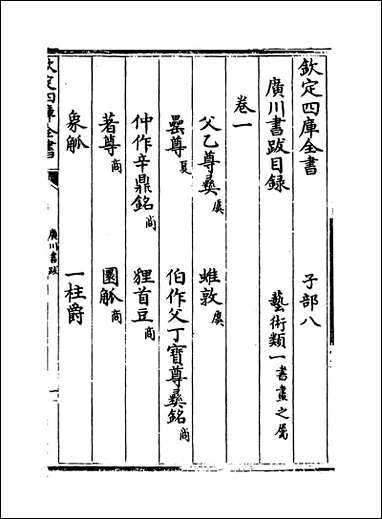 欽定四庫全書　子部八
廣川書跋目録　藝術類一書畫之屬
卷一
父乙尊彝虞　蜼敦虞
罍尊夏　伯作父丁寶尊彝銘商
仲作辛鼎銘商　貍首豆商
著尊商　圜觚商
象觚　一柱爵
欽定四庫全書　廣川書跋